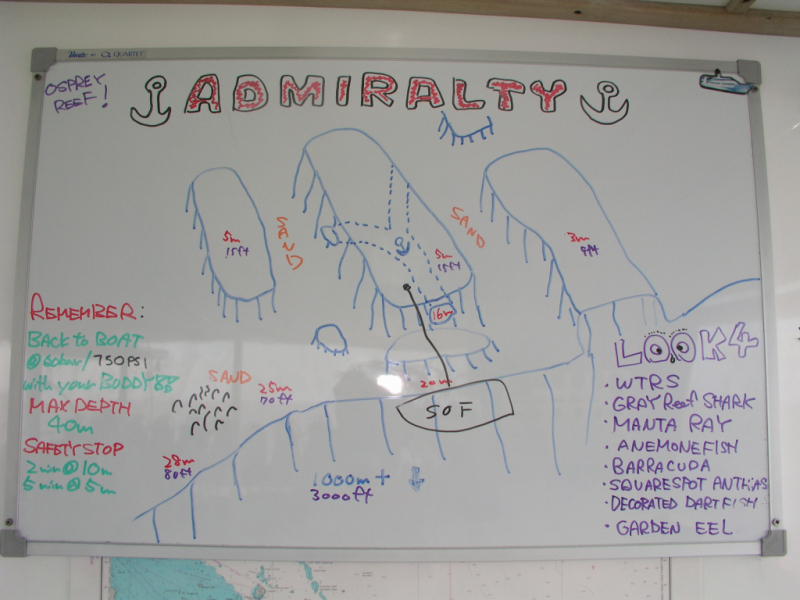 QUARTET
OSPREY
REEF!
ADMIRALTY
5m
15ft
SAND
5m
15ft
SAND
3m
9ft
16m
20m
SOF
SAND
25m
70ft
28m
80ft
1000m+
3000ft
REMEMBER:
BACK to BOAT
@ 60bar/750PSI
with your BUDDY
MAX DEPTH
40m
SAFETY STOP
2min@10m
5min@5m
LOOK4
• WTRS
• GRAY Reef SHARK
• MANTA RAY
• ANEMONEFISH
• BARRACUDA
• SQUARESPOT ANTHIAS
• DECORATED DARTFISH
• GARDEN EEL